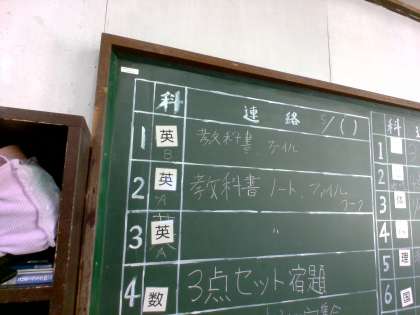 科 連絡 /( ) 科
1 英 B 教科書 ファイル 1
2 英 A 教科書 ノート ファイル 2
ワーク
3 英 A 〃 3 体
4 数 3点セット 宿題 4
5 理
6 国